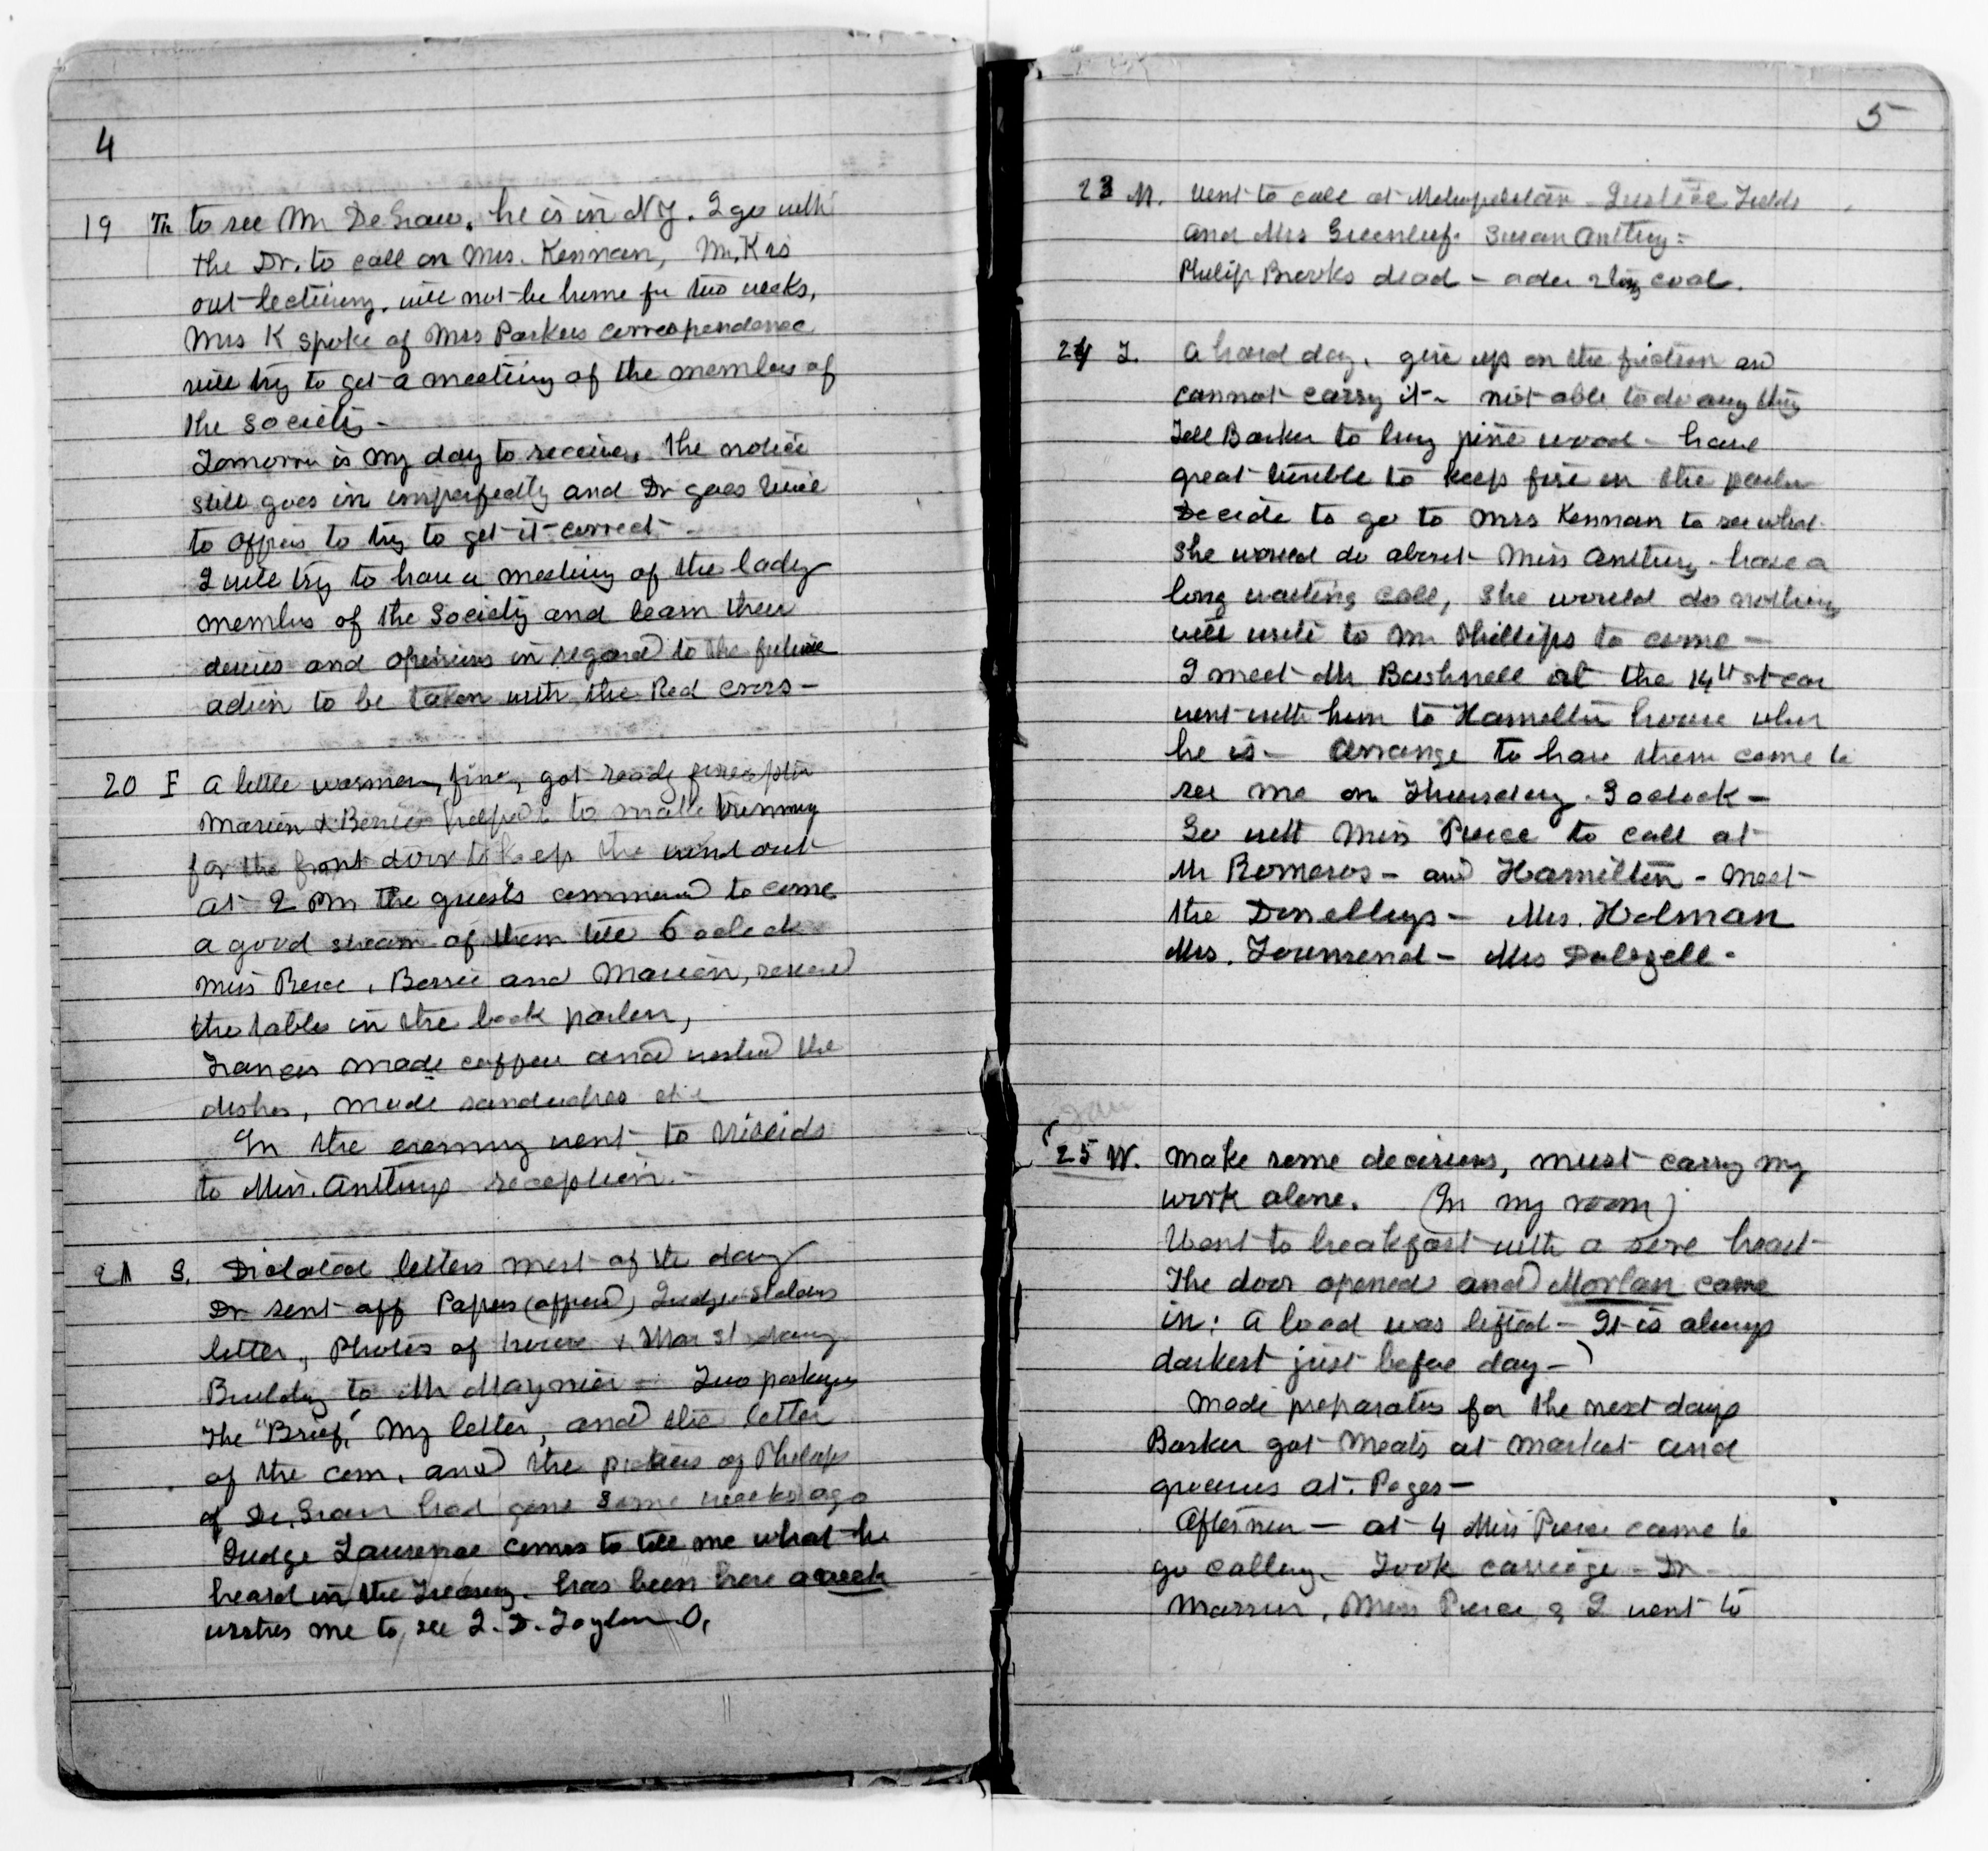 4
19 Th to see Mr DeGraw. he is in N Y. I go with
the Dr. to call on Mrs. Kennan, Mr. K is
out lecturing. will not be home for two weeks,
Mrs K spoke of Mrs Parkers correspondence
will try to get a meeting of the members of
the Society -
Tomorrow is my day to receive, the notice
still goes in imperfectly and Dr goes twice
to offices to try to get it correct -
I will try to have a meeting of the lady
members of the Society and learn their
desires and opinions in regard to the future
action to be taken with the Red cross -
20 F a little warmer, fine, got ready for reception
Marion & Bessie helped to make trimmy
for the front door to keep the wind out
at 2 PM the guests commenced to come
a good stream of them till 6 oclock
Miss Pierce, Bessie and Marion, served
the tables in the back parlor,
Francis made coffee and washed the
dishes, made sandwiches etc
In the evening went to
to Miss. Anthonys reception. -
21 S. Dictated letters most of the day
Dr sent off Papers (offices) Judge
letter, Photos of house &
Building to Mr Maynier - Two packages
The "Brief," My letter, and the letter
of the com. and the pictures of Phelaps
of De. Graw had gone some weeks ago
Judge Laurence comes to tell me what he
heard in the Treasury. has been here a week
wishes me to see J. D. Taylor O,
5
23 M. Went to call at Metropolitan - Justice Fields
and Mrs Greenleaf. Susan Anthony -
Philip Brooks dead - order 2 tons coal.
24 T. a hard day. give up on the friction and
cannot carry it - not able to do any thing
Tell Barker to buy pine wood - have
great trouble to keep fire in the parlor
Decide to go to Mrs Kennan to see what
she would do about Miss Anthony - have a
long waiting call, she would do nothing
will write to Mr. Phillips to come -
I meet Mr Bushnell at the 14th st car
went with him to Hamilton house where
he is - Arrange to have them come to
see me on Thursday - 3 oclock -
Go with Miss Pierce to call at
Mr Romeros - and Hamilton - meet
the Donellys - Mrs. Holman
Mrs. Townsend - Mrs Dalzell -
Jan
25 W. Make some decisions, must carry my
work alone. (In my room)
Went to breakfast with a sore heart
The door opened and Morlan came
in: A load was lifted - It is always
darkest just before day - )
Made preparatns for the next days
Barker got meats at market and
groceries at. Pages -
Afternoon - at 4 Miss Pierce came to
go calling - Took carriage - Dr -
Marrun, Miss Pierce & I went to